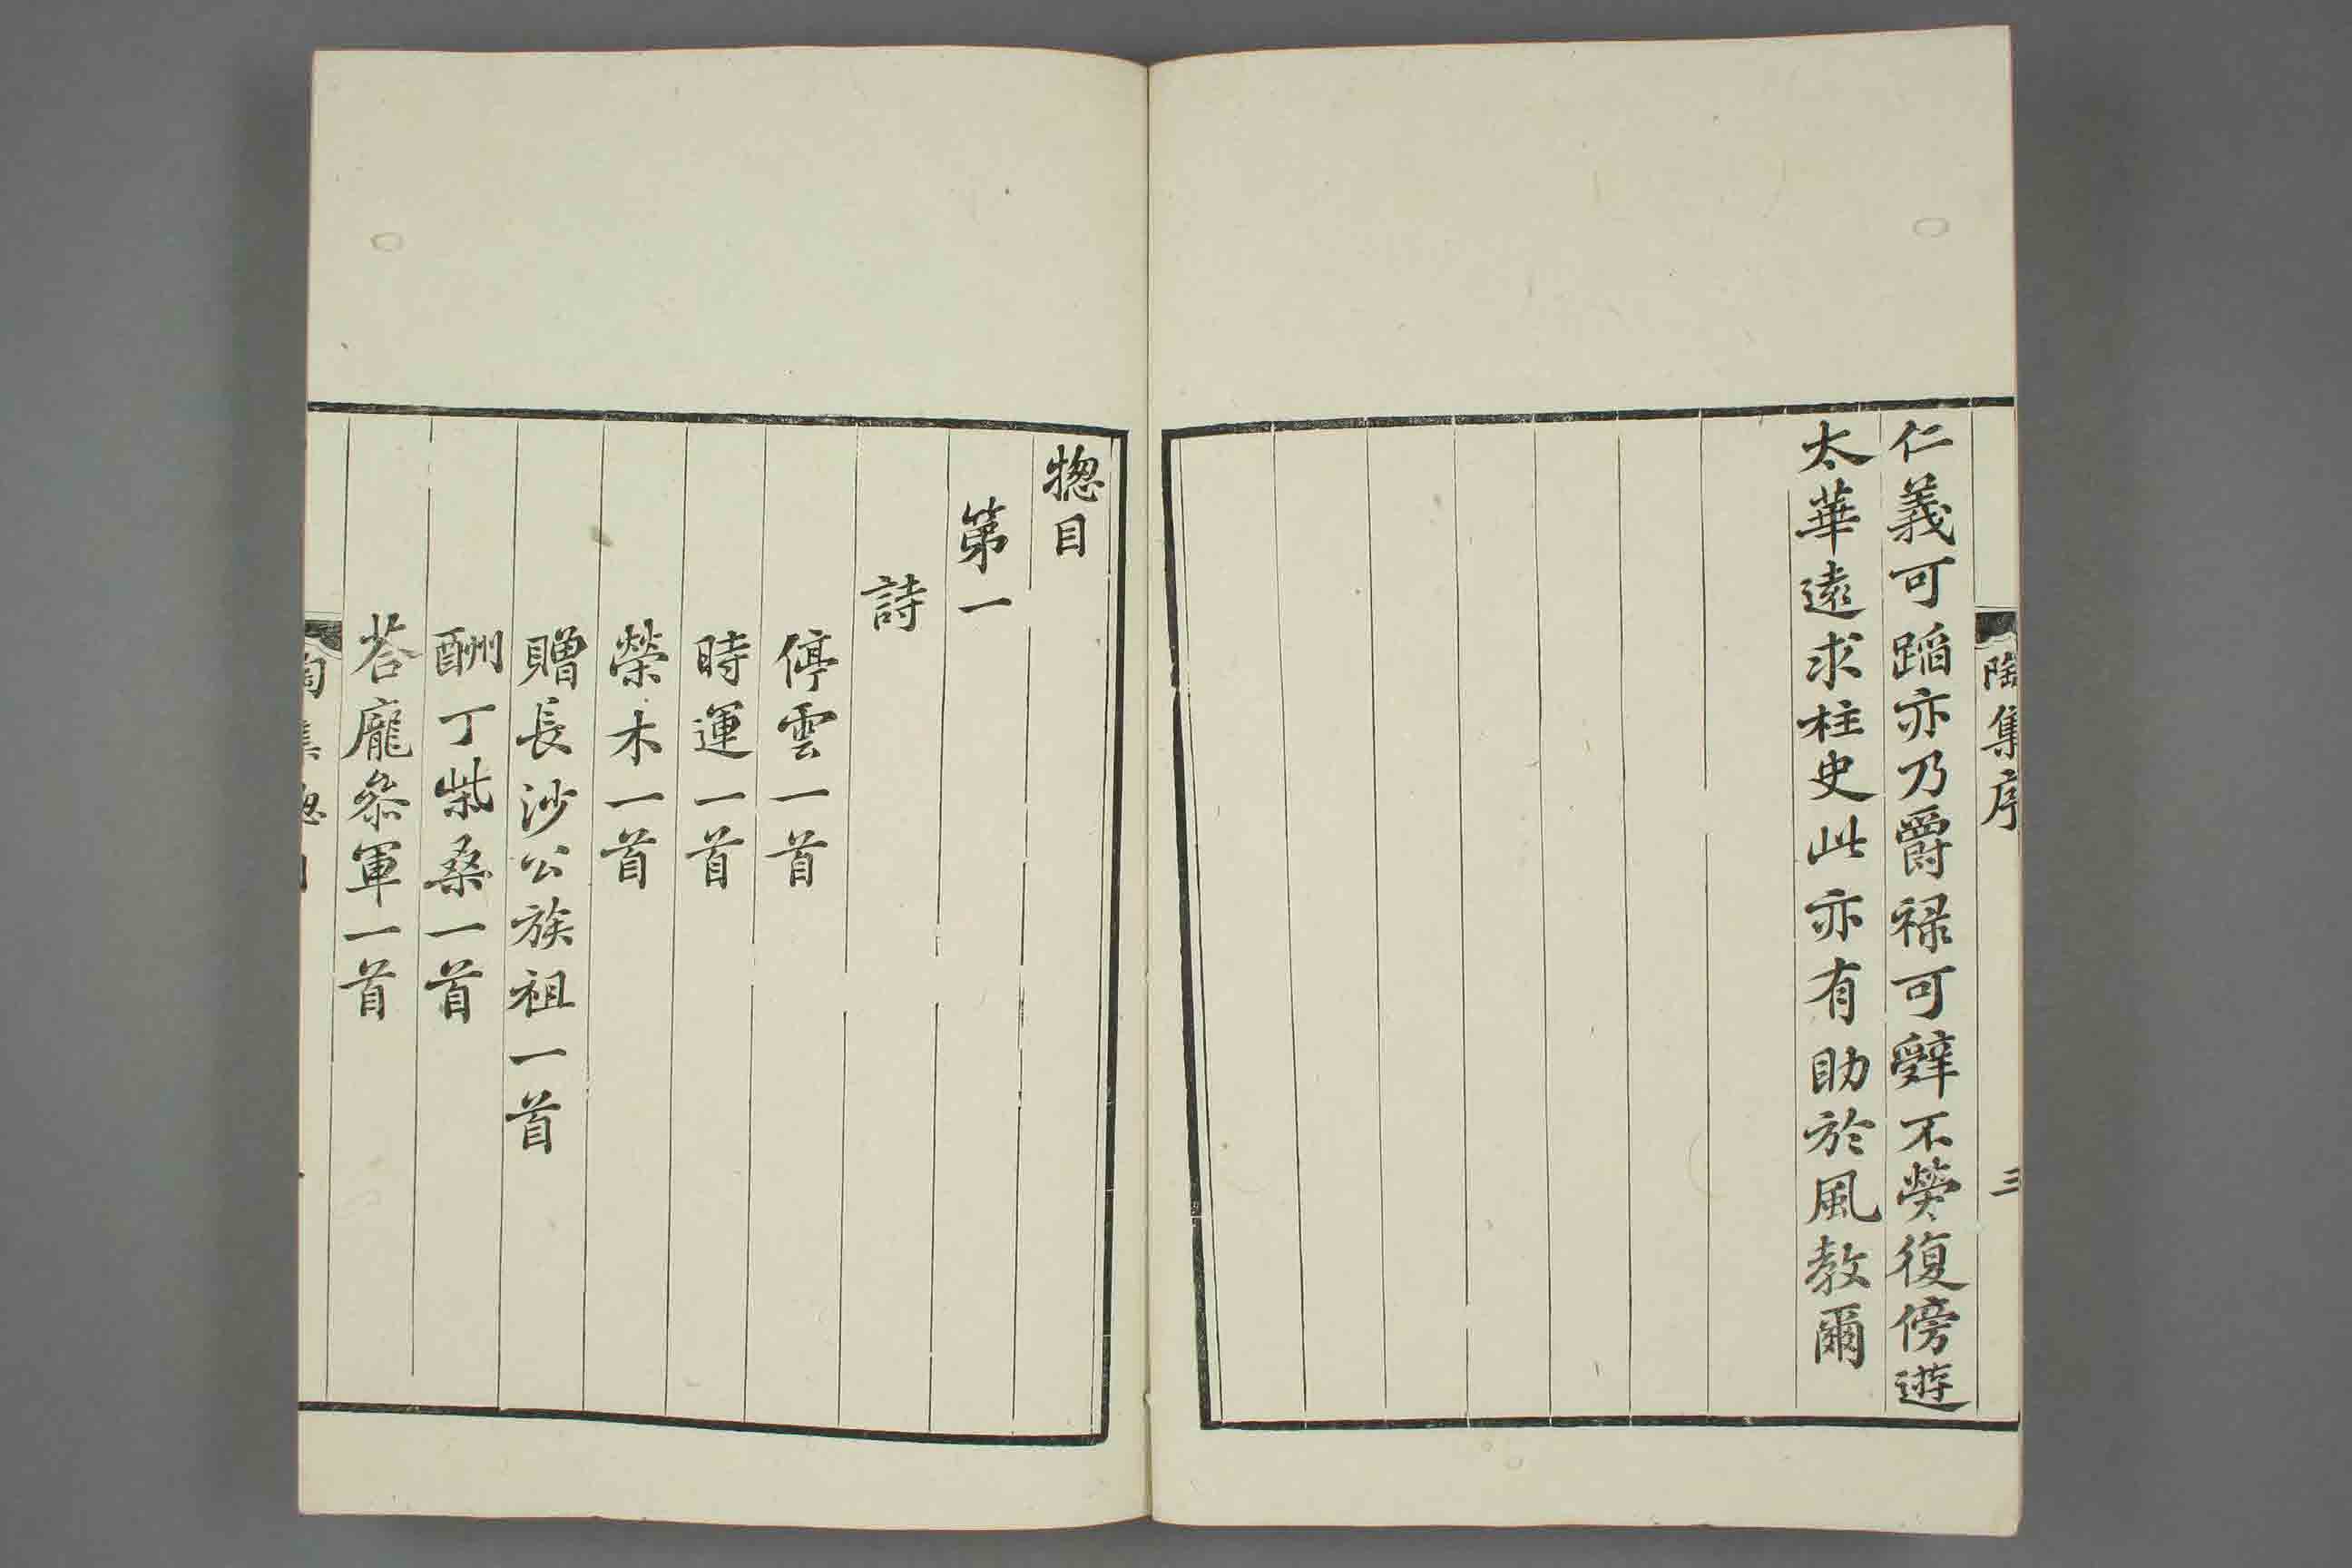 陶集序
三
仁義可蹈亦乃爵禄可辤不勞復傍遊
太華遠求柱史此亦有助於風教爾
揔目
第一
詩
停雲一首
時運一首
榮木一首
贈長沙公族祖一首
酬丁柴桑一首
荅龐叅軍一首